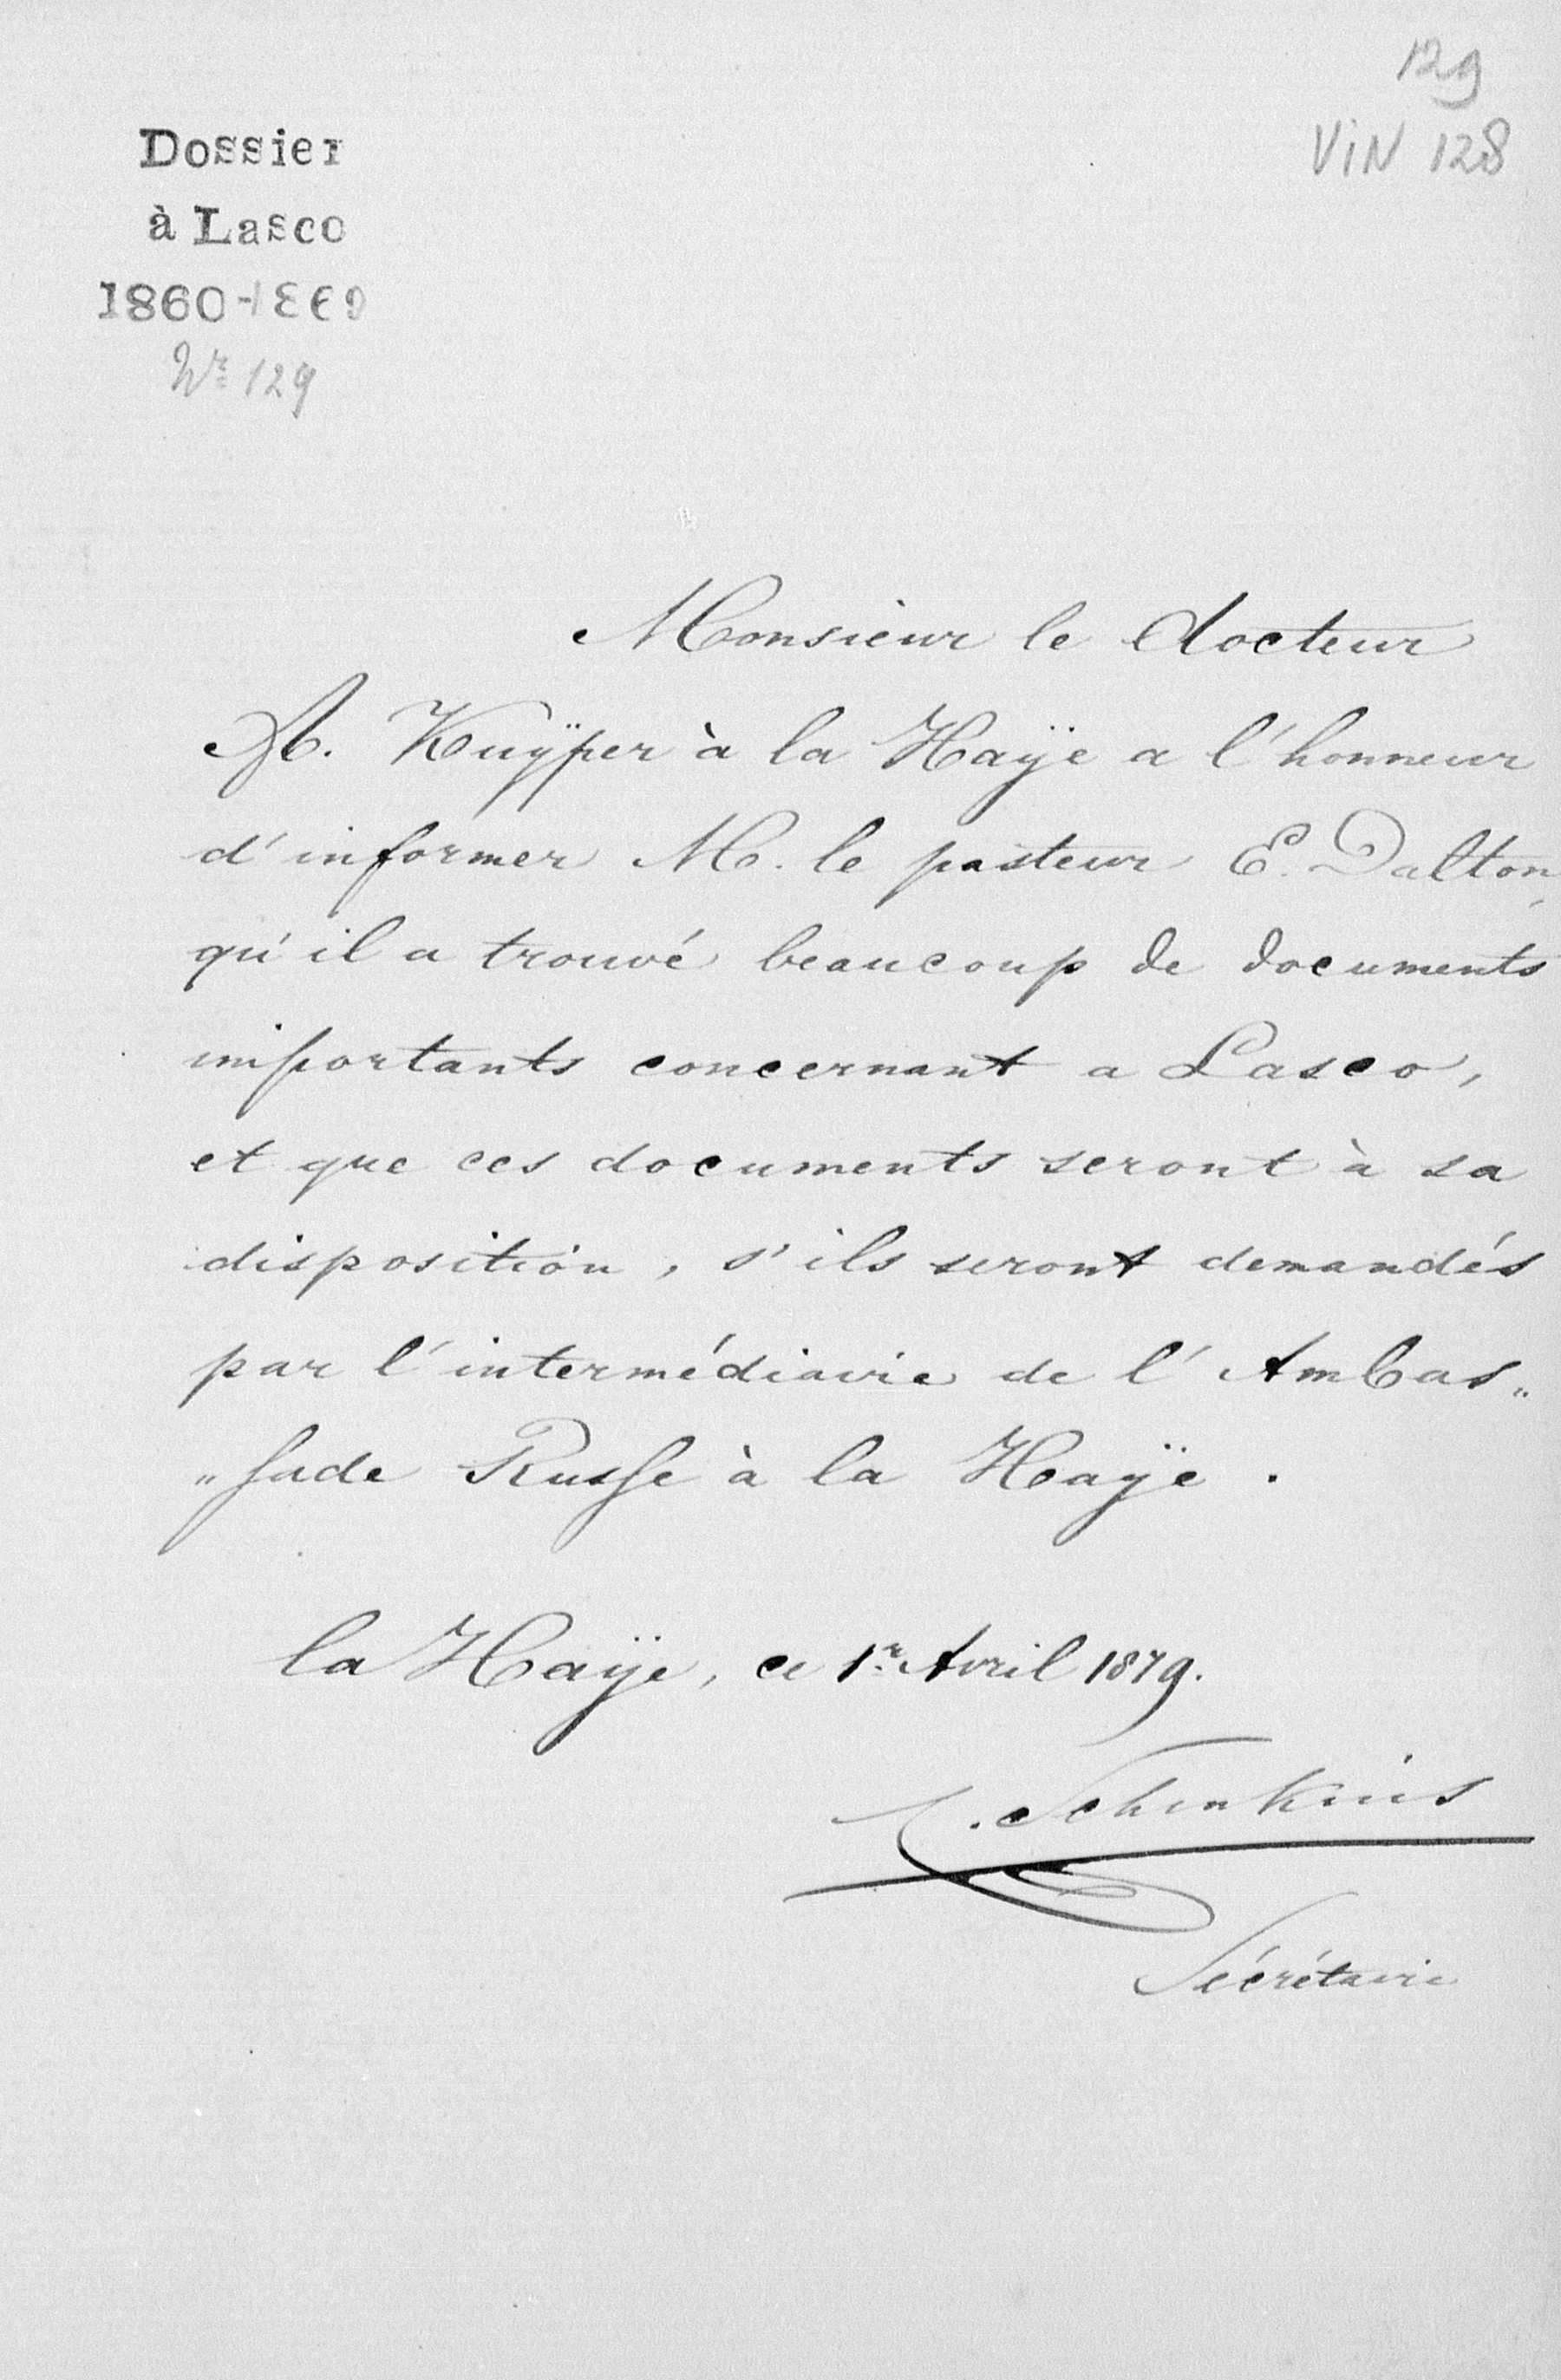 129
VIN 128
Dossier
à Lasco
1860-1869
Nr 129
Monsieur le docteur
A. Kuÿper à la Haÿe a l'honneur
d'informer M. le pasteur E. Dalton,
qu'il a trouvé beaucoup de documents
importants concernant a Lasco,
et que ces documents seront à sa
disposition, s'ils seront demandés
par l'intermédiaire de l'Ambas„
„sade Russe à la Haÿe.
la Haÿe, ce 1r Avril 1879.
Sécrétaire